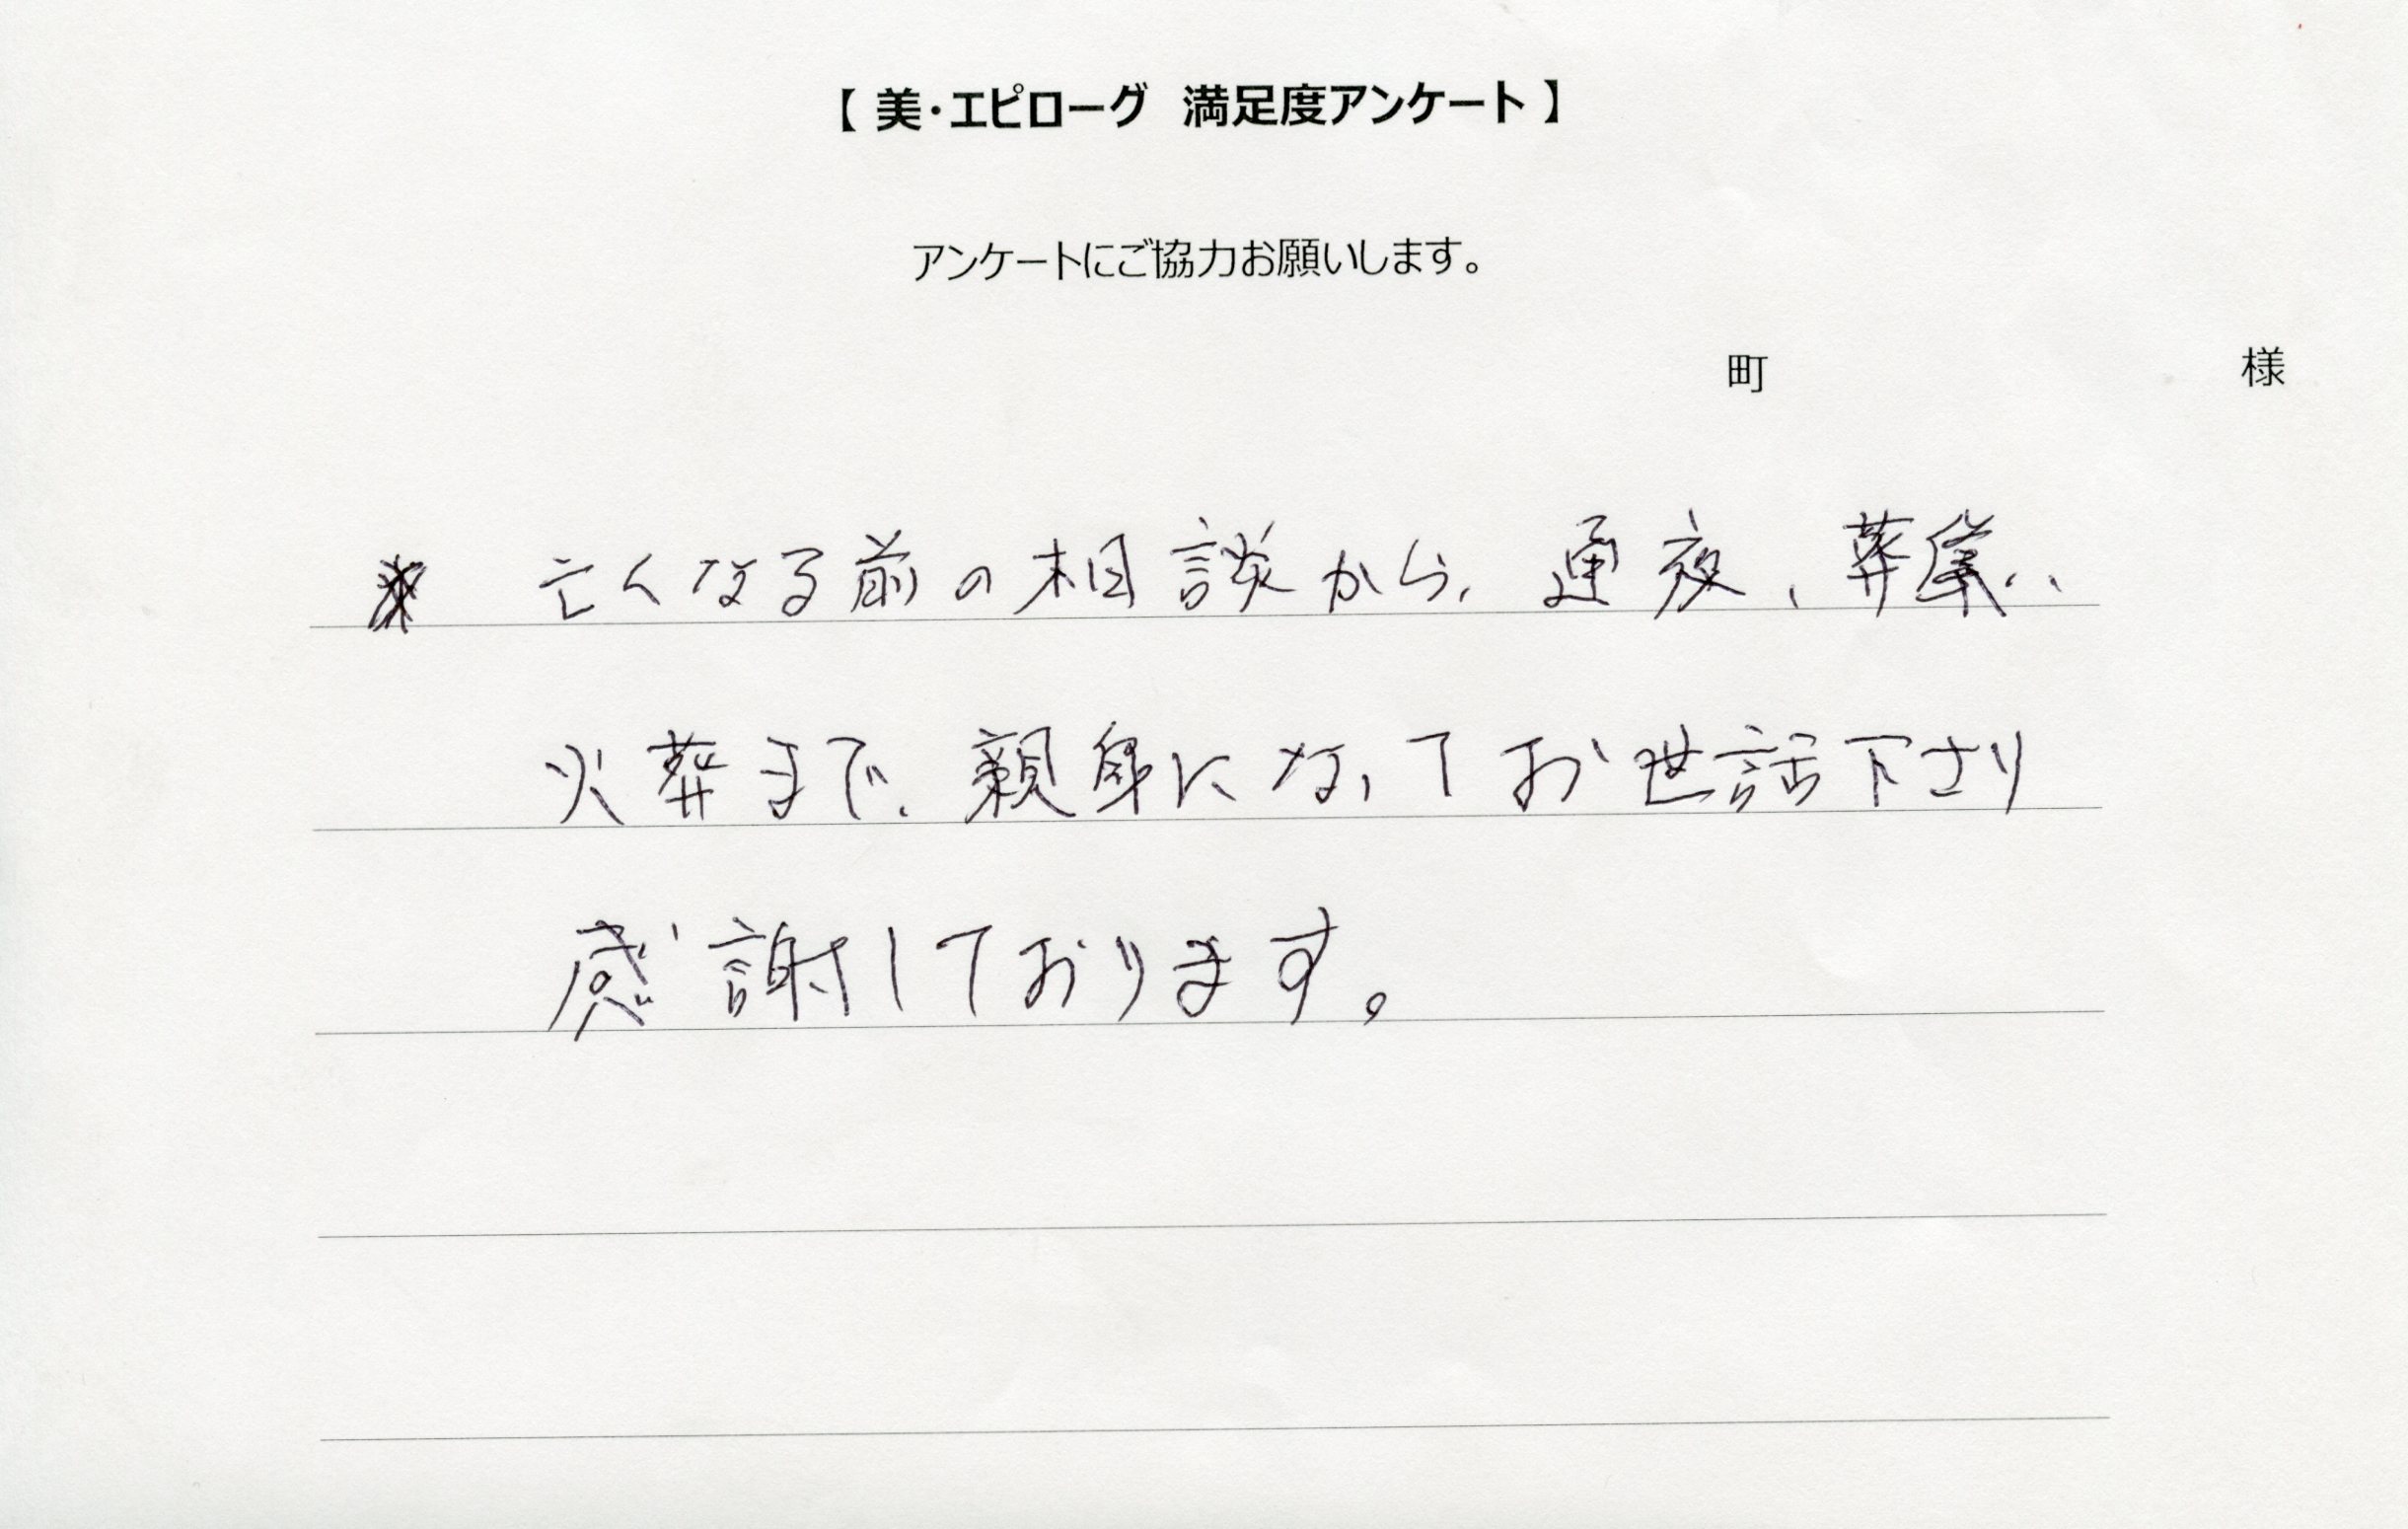 【 美・エピローグ 満足度アンケート 】
アンケートにご協力お願いします。
町 様
亡くなる前の相談から、通夜、葬儀、、
火葬まで、親身になってお世話下さり
感謝しております。